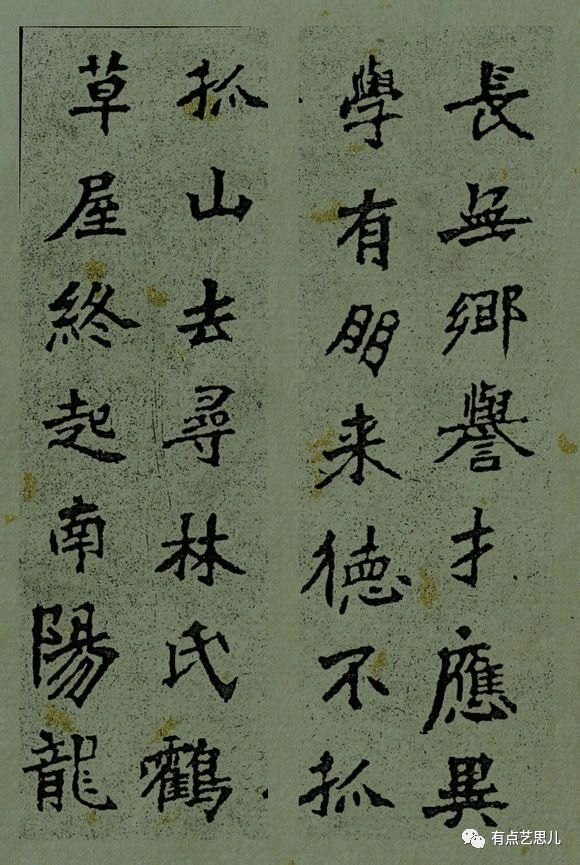 長無鄉譽才應異
學有朋来德不孤
孤山去尋林氏鶴
草屋終起南陽龍
有点艺思儿